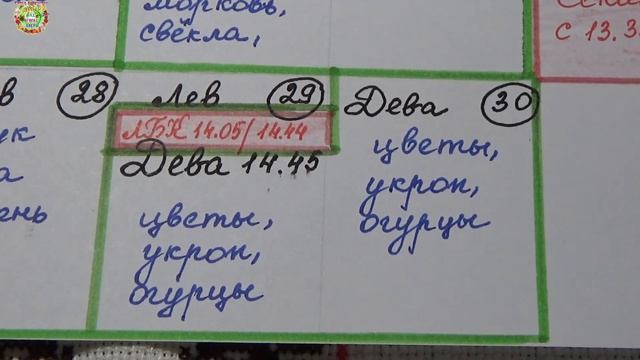 морковь,
свёкла,
с 13.3
в 28
ук
а
ень
Лев 29
ЛБК 14.05/14.44
Дева 14.45
цветы,
укроп,
огурцы
Дева 30
цветы,
укроп,
огурцы